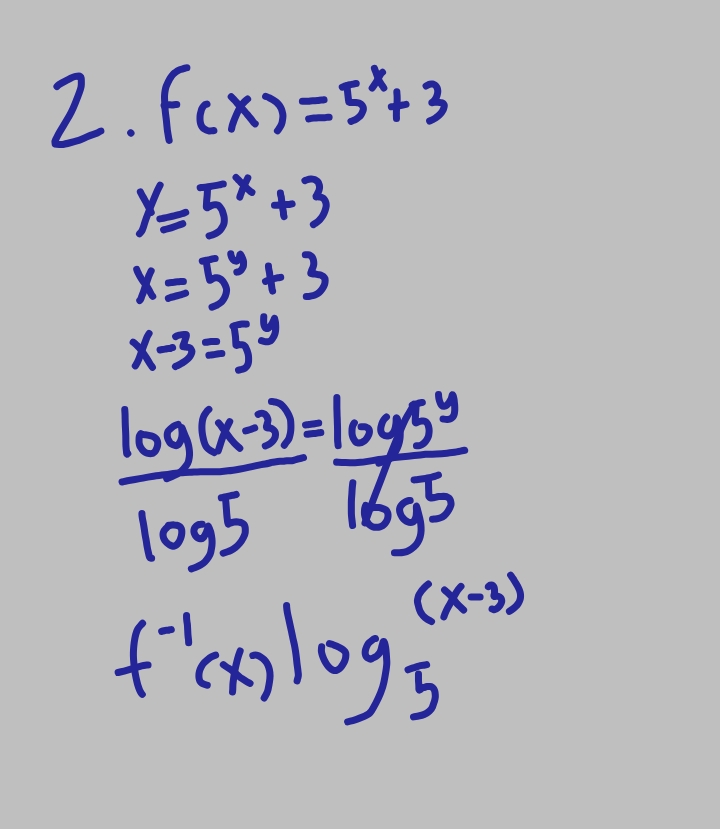 2. f(x) = 5^x + 3
y = 5^x + 3
x = 5^y + 3
x-3 = 5^y
log(x-3) = log5^y
log5 log5
f^-1(x) log_5 (x-3)